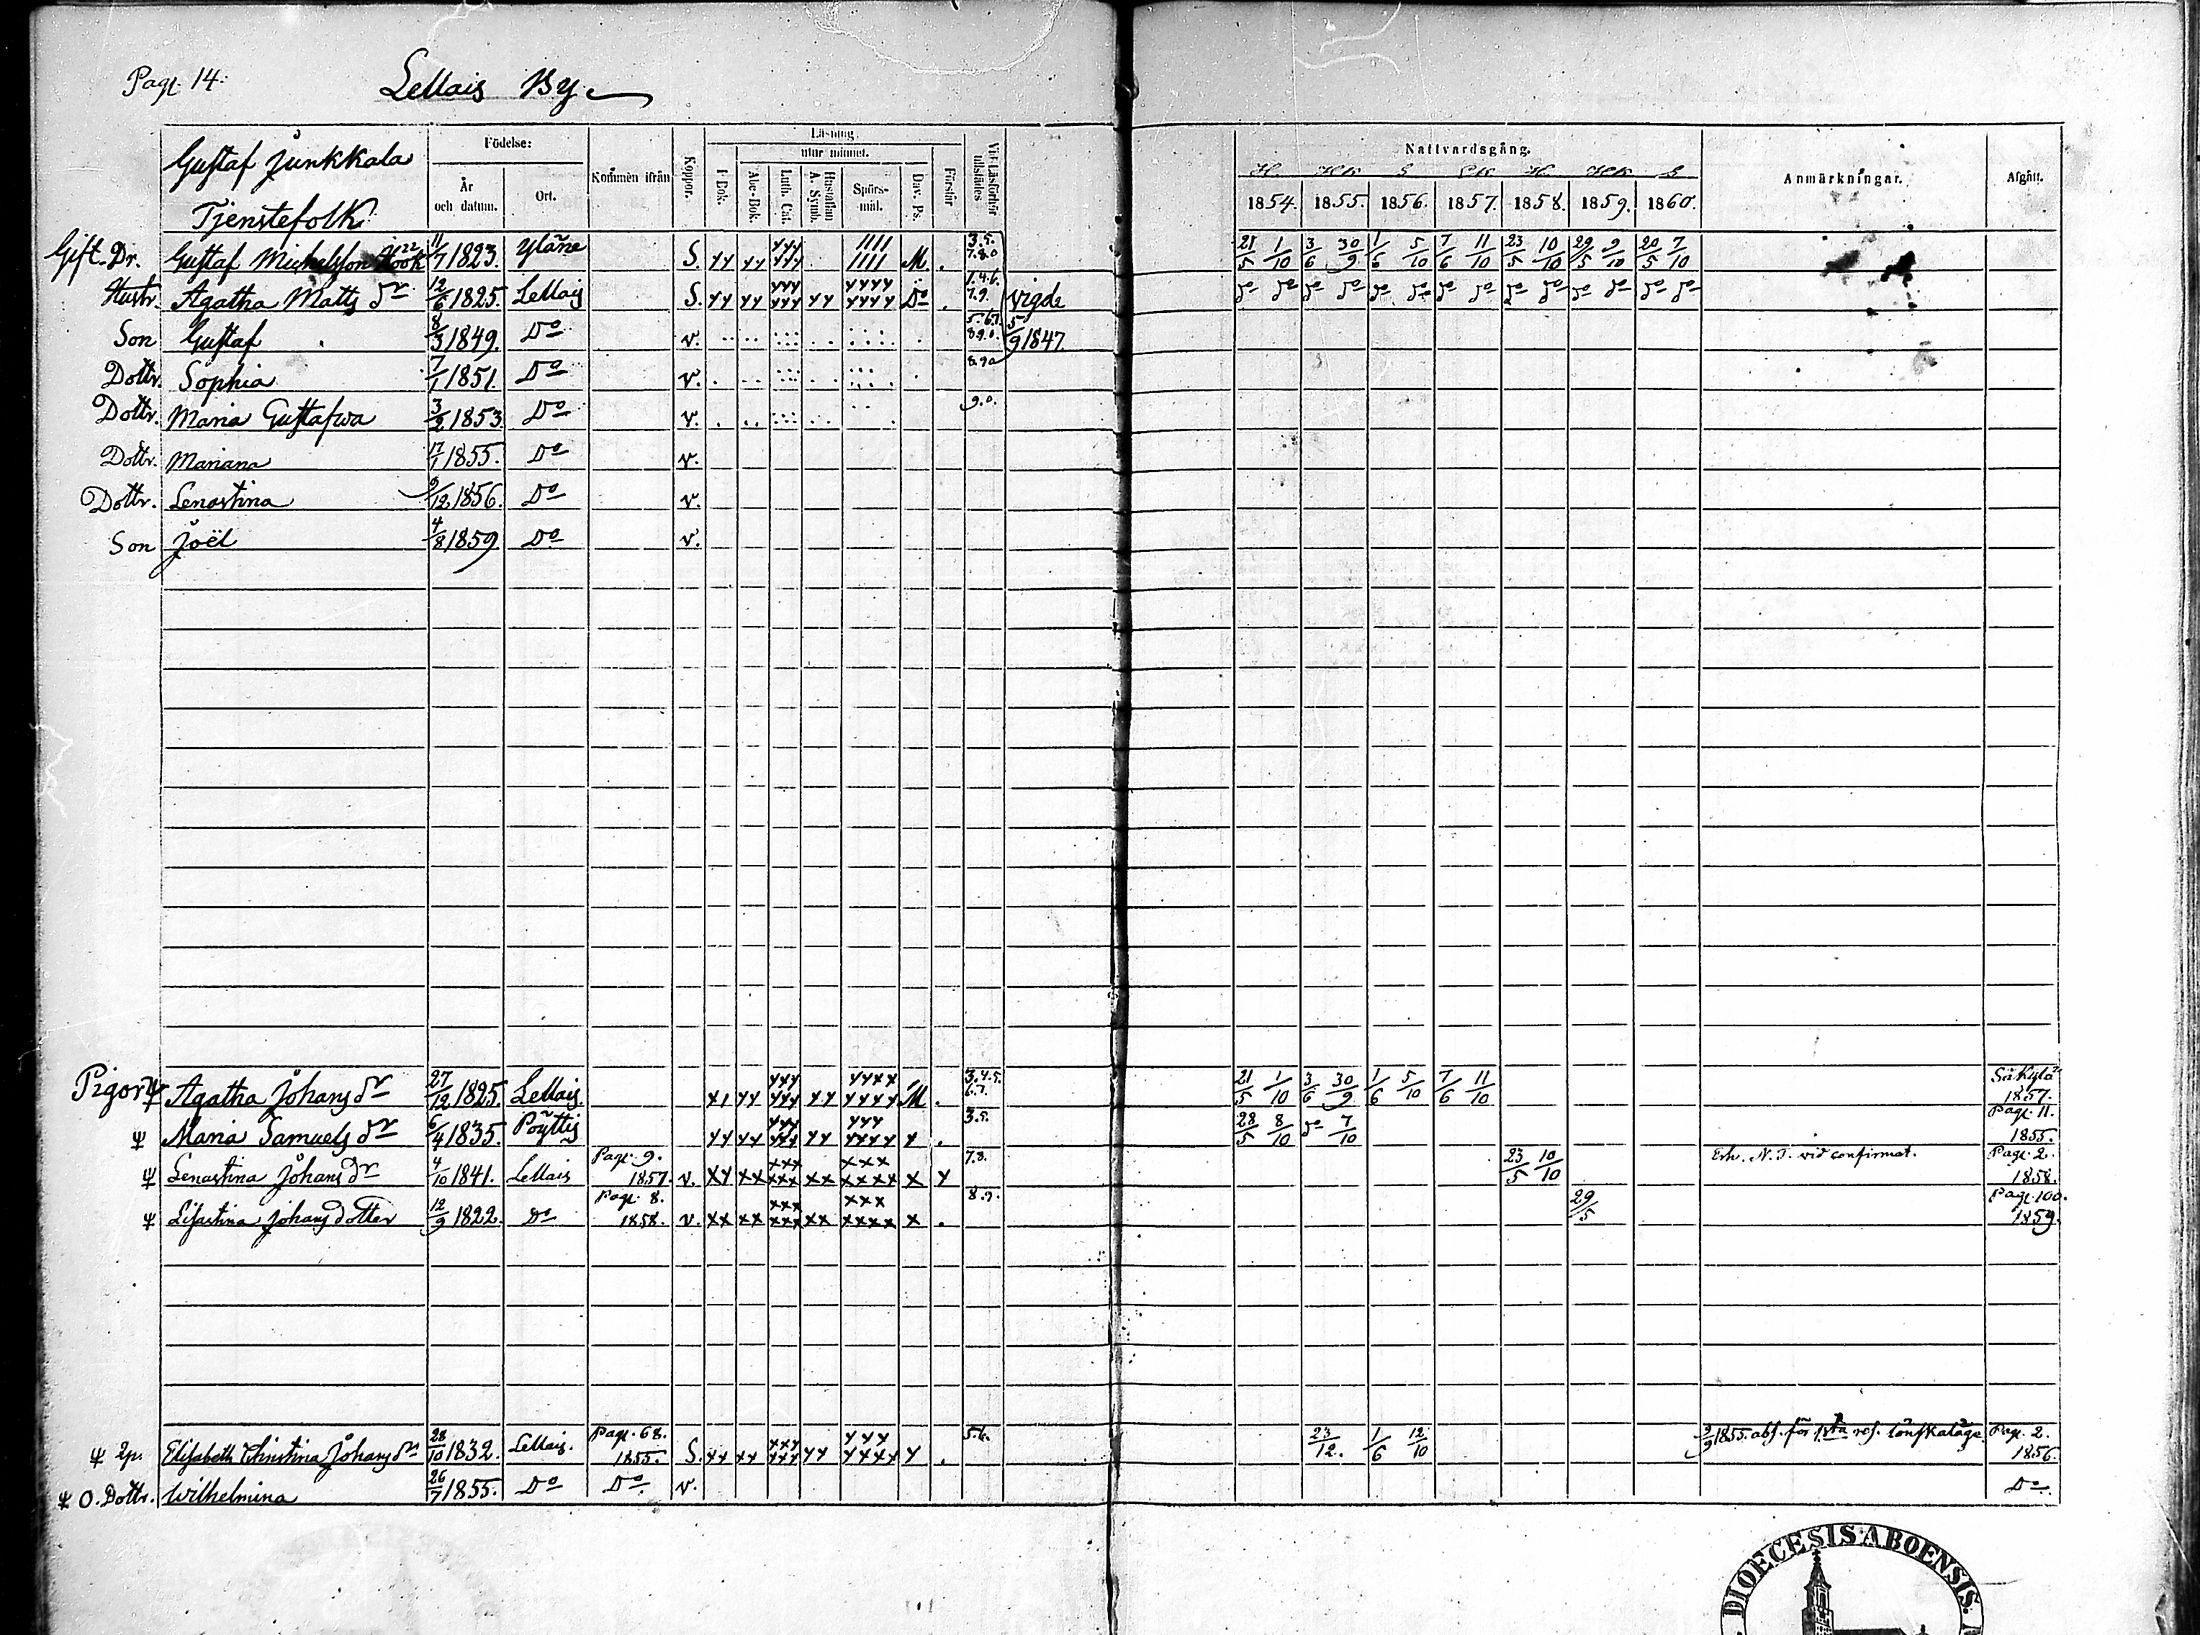 Pag. 14.
Lellais By
Gustaf Junkkala
Tjenstefolk:
Födelse:
År och datum.
Ort.
Kommen ifrån
Koppor.
Läsning.
I Bok.
utur minnet.
Abc-Bok.
Luth. Cat.
Hustaflan A. Symb.
Spörs-mål.
Dav. Ps.
Förstår
Vid Läsförhör
Nattvardsgång.
1854. 1855. 1856. 1857. 1858. 1859. 1860.
Anmärkningar.
Afgått.
Gift. Dr. Gustaf Michelsson 11/7 1823. Yläne S. M. 3.5. 7.8.0 21/5 1/10 3/6 30/9 1/6 5/10 7/6 11/10 23/5 10/10 29/5 9/10 20/5 7/10
Hustr. Agatha Matts dr 12/6 1825. Lellais S. Do 1.4.6. 7.9. vigde do do do do do do do do do do do do do do
Son Gustaf 8/3 1849. Do v. 5.6.7. 8.9.0. 5/9 1847.
Dottr. Sophia 7/1 1851. Do v. 8.9.0
Dottr. Maria Gustafwa 3/2 1853. Do v. 9.0.
Dottr. Mariana 17/1 1855. Do v.
Dottr. Lenastina 9/12 1856. Do v.
Son Joël 4/8 1859. Do v.
Pigor Agatha Johans dr 27/12 1825. Lellais. M. 3.4.5. 6.7. 21/5 1/10 3/6 30/9 1/6 5/10 7/6 11/10 Säkylä 1857.
Maria Samuels dr 6/4 1835. Pöyttis 3.5. 28/5 8/10 do 7/10 Pag. 11. 1855.
Lenastina Johans dr 4/10 1841. Lellais Pag. 9. 1857. v. 7.8. 23/5 10/10 Erh. N. T. vid confirmat. Pag. 2. 1858.
Lisastina Johans dotter 12/9 1822. Do Pag. 8. 1858. v. 8.9. 29/5 Pag. 100. 1859.
2p. Elisabeth Christina Johans dr 28/10 1832. Lellais. Pag. 68. 1855. S. 5.6. 23/12. 1/6 12/10 1855. abs. för 1sta res. lönskaläge. Pag. 2. 1856.
O. Dottr. Wilhelmina 26/7 1855. Do Do v. Do
DIOECESIS ABOENSIS.